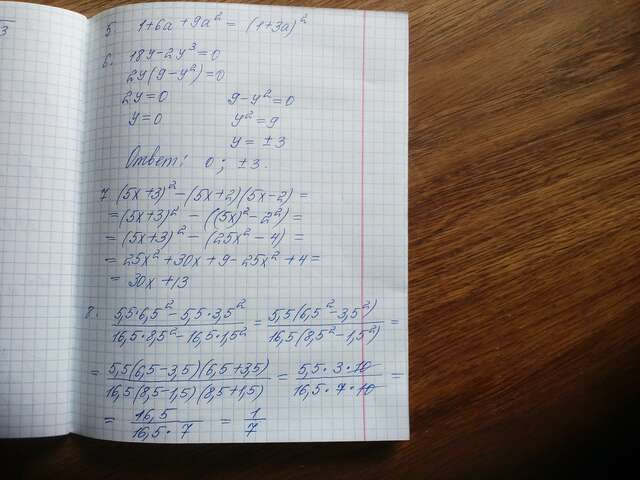 3
5. 1+6a+9a² = (1+3a)²
6. 18y-2y³=0
2y(9-y²)=0
2y=0 9-y²=0
y=0 y²=9
y=±3
Ответ: 0; ±3.
7. (5x+3)²-(5x+2)(5x-2)=
=(5x+3)²-((5x)²-2²)=
=(5x+3)²-(25x²-4)=
=25x²+30x+9-25x²+4=
=30x+13
8. (5,5·6,5²-5,5·3,5²)/(16,5·8,5²-16,5·1,5²) = (5,5(6,5²-3,5²))/(16,5(8,5²-1,5²)) =
= (5,5(6,5-3,5)(6,5+3,5))/(16,5(8,5-1,5)(8,5+1,5)) = (5,5·3·10)/(16,5·7·10) =
= (16,5)/(16,5·7) = 1/7